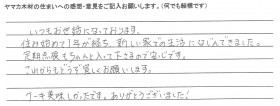 ヤマカ木材の住まいへの感想・意見をご記入お願いします。（何でも結構です）
いつもお世話になっております。
住み始めて1年が経ち、新しい家での生活になじんできました。
定期点検もちゃんと入って下さるので安心です。
これからもどうぞ宜しくお願いします。
ケーキ美味しかったです。ありがとうございました!